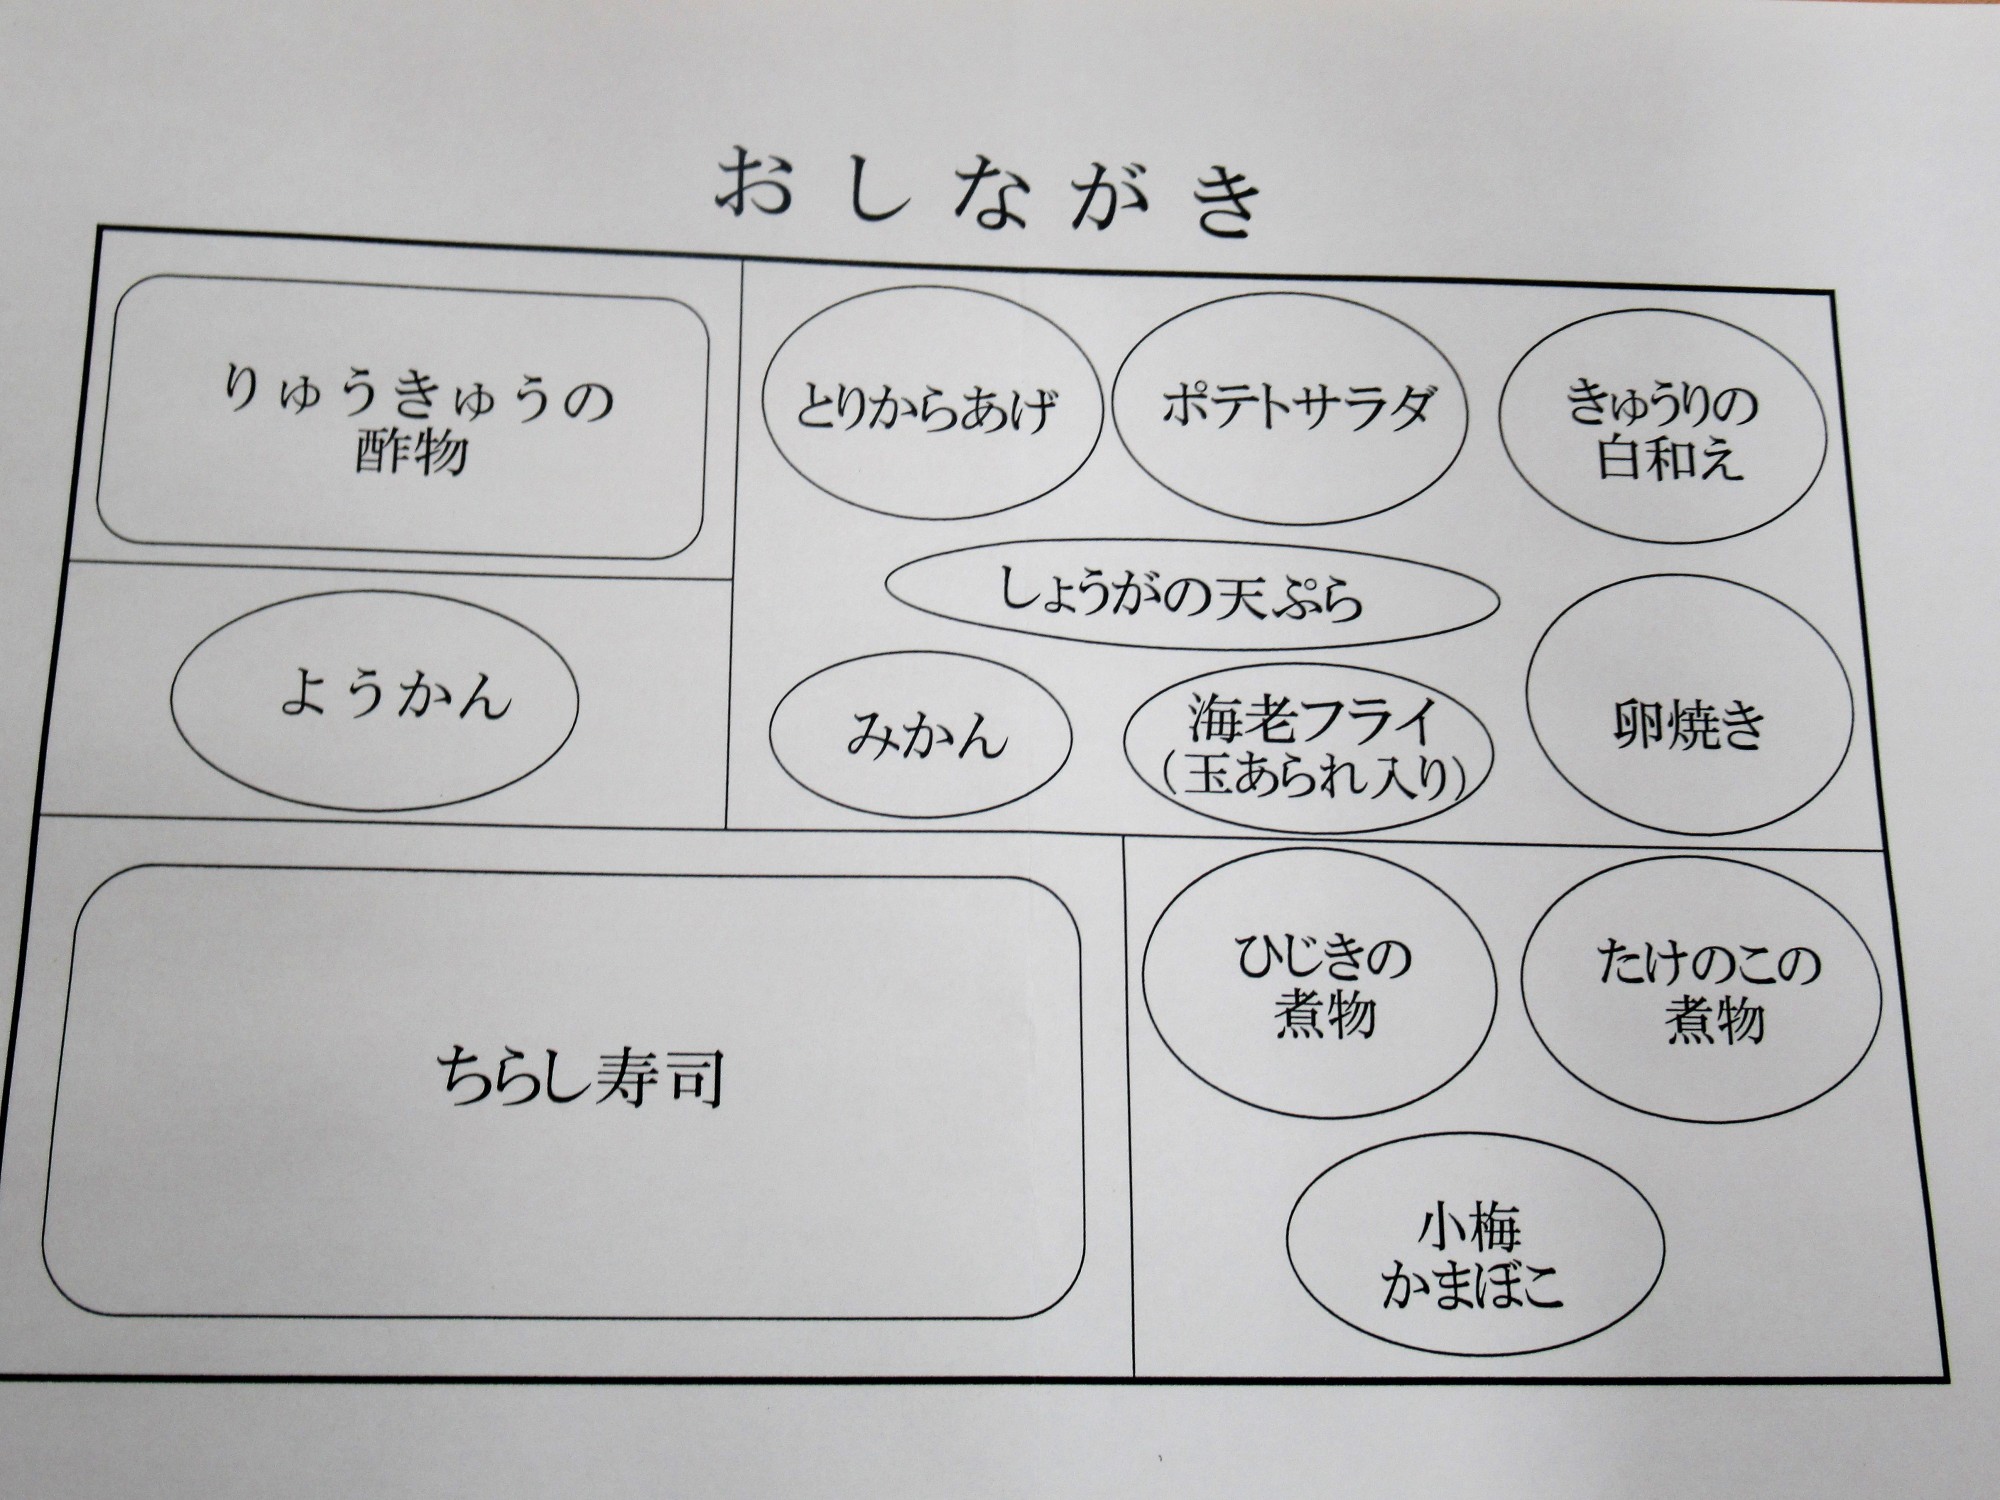 おしながき
りゅうきゅうの
酢物
とりからあげ
ポテトサラダ
きゅうりの
白和え
しょうがの天ぷら
ようかん
みかん
海老フライ
（玉あられ入り）
卵焼き
ちらし寿司
ひじきの
煮物
たけのこの
煮物
小梅
かまぼこ